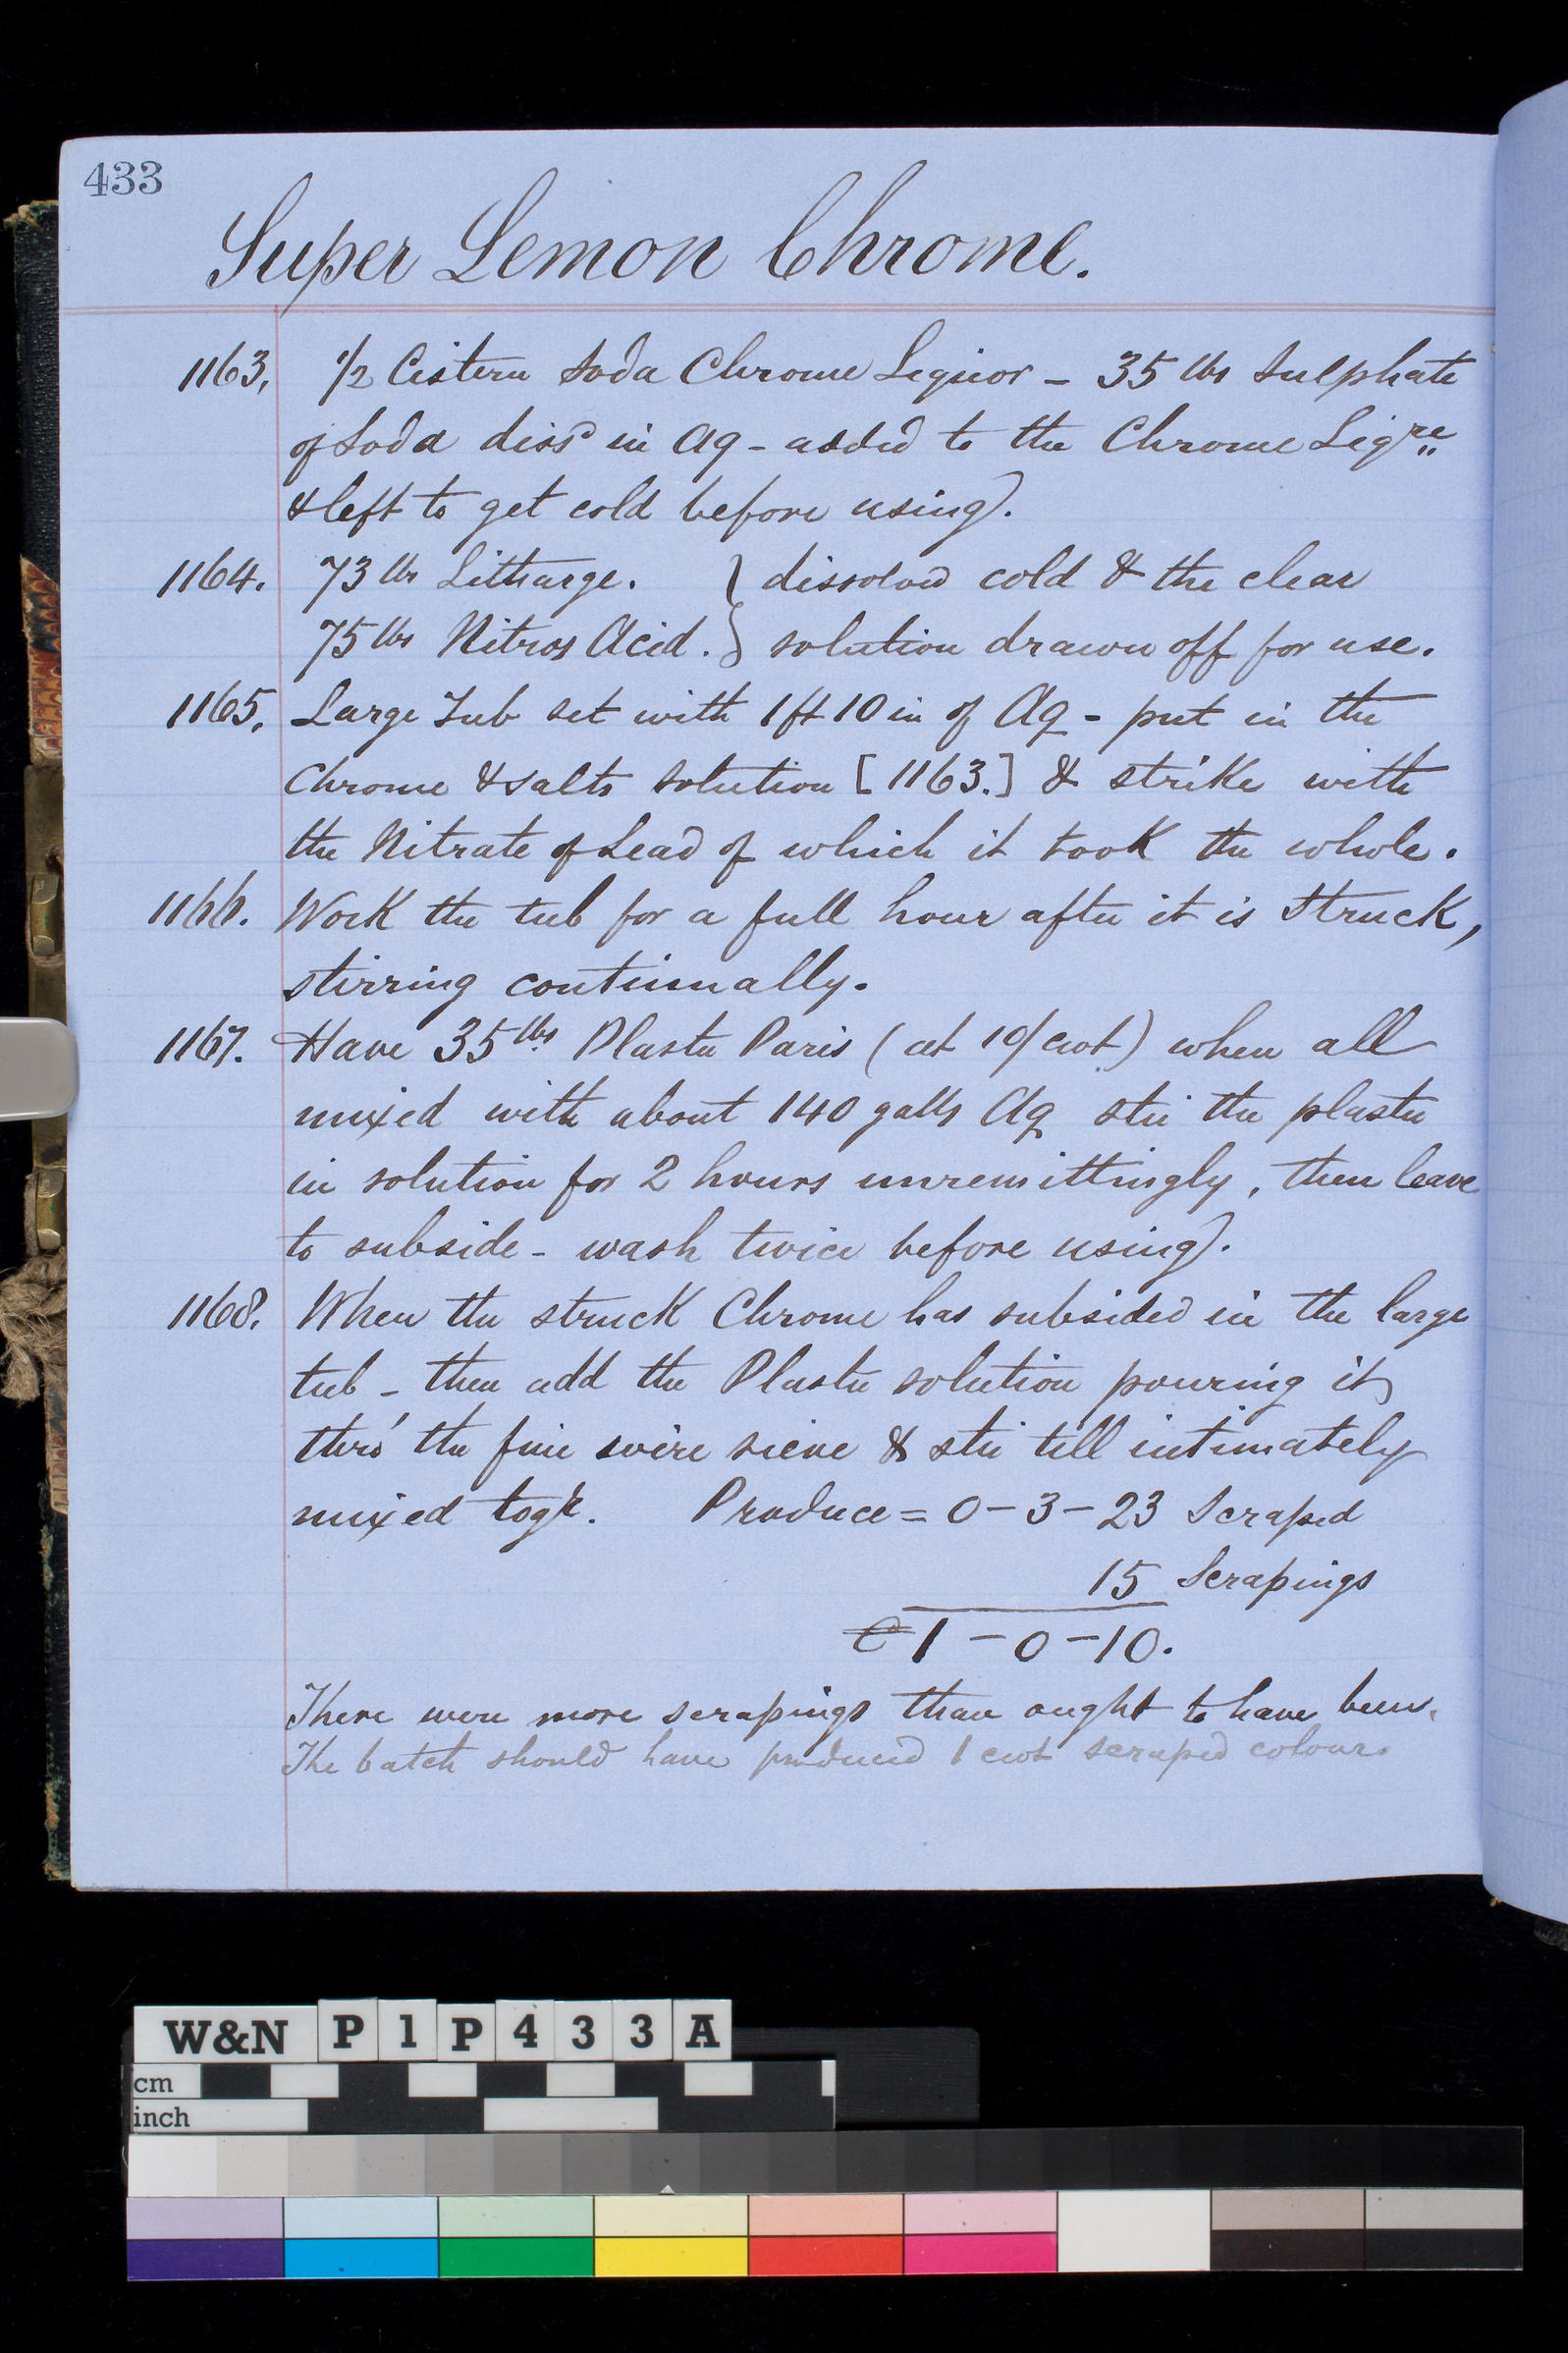 433
Super Lemon Chrome.
1163. 1/2 Cistern Soda Chrome Liquor - 35 lbs Sulphate
of Soda dissd in Aq - added to the Chrome Liqre
& left to get cold before using.
1164. 73 lbs Litharge. } dissolved cold & the clear
75 lbs Nitros Acid. } solution drawn off for use.
1165. Large Tub set with 1 ft 10 in of Aq - put in the
Chrome & salts solution [1163.] & strike with
the Nitrate of Lead of which it took the whole.
1166. Work the tub for a full hour after it is struck,
stirring continually.
1167. Have 35 lbs Plaster Paris (at 10/cwt) when all
mixed with about 140 galls Aq stir the plaster
in solution for 2 hours unremittingly, then leave
to subside - wash twice before using.
1168. When the struck Chrome has subsided in the large
tub - then add the Plaster solution pouring it
thro' the fine wire sieve & stir till intimately
mixed togr. Produce = 0 - 3 - 23 Scraped
15 Scrapings
C 1 - 0 - 10.
There were more scrapings than ought to have been.
The batch should have produced 1 cwt scraped colour.
W&N P1P433A
cm
inch